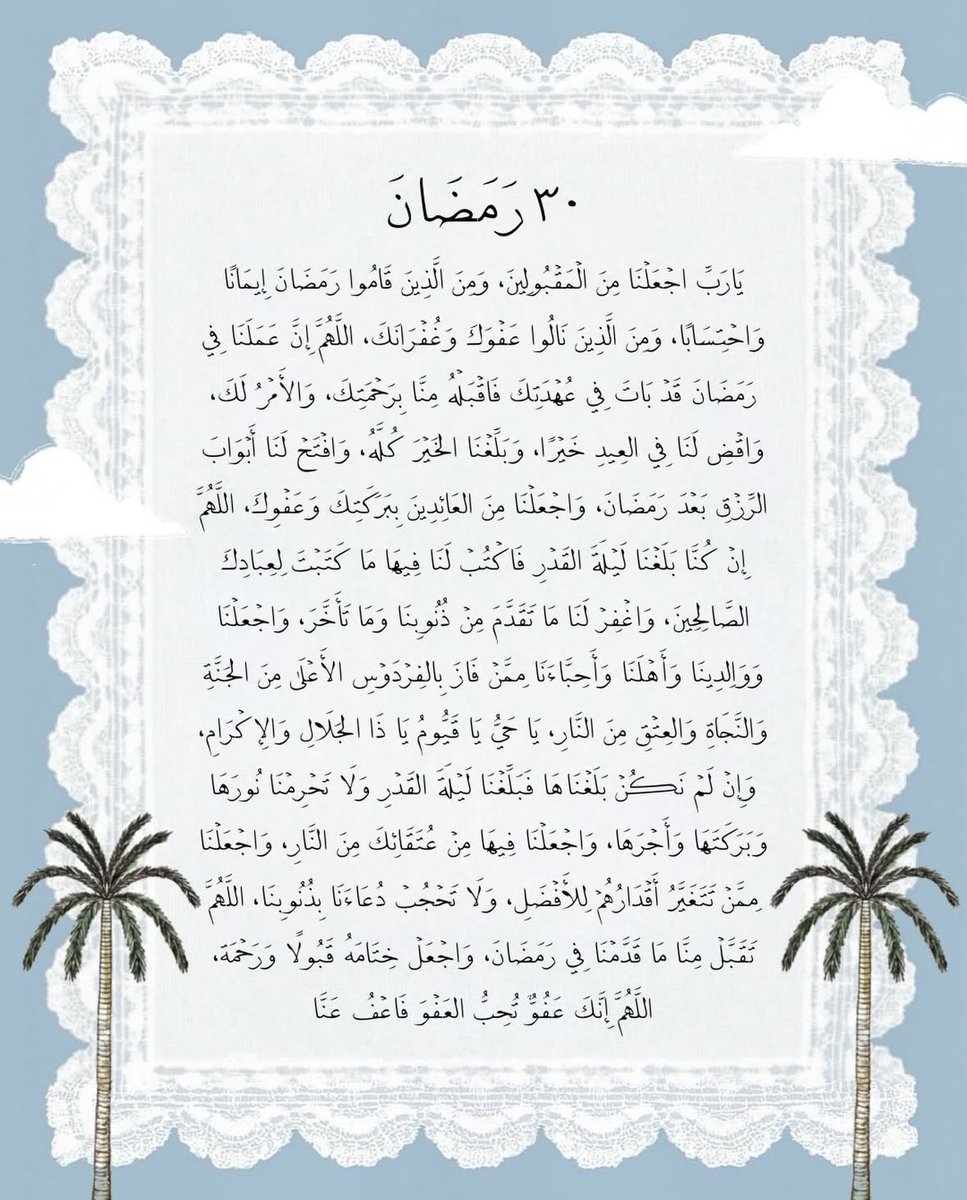 ٣٠ رَمَضَانَ
يَارَبِّ اجْعَلْنَا مِنَ الْمَقْبُولِينَ، وَمِنَ الَّذِينَ قَامُوا رَمَضَانَ إِيمَانًا
وَاحْتِسَابًا، وَمِنَ الَّذِينَ نَالُوا عَفْوَكَ وَغُفْرَانَكَ، اللَّهُمَّ إِنَّ عَمَلَنَا فِي
رَمَضَانَ قَدْ بَاتَ فِي عُهْدَتِكَ فَاقْبَلْهُ مِنَّا بِرَحْمَتِكَ، وَالأَمْرُ لَكَ،
وَاقْضِ لَنَا فِي العِيدِ خَيْرًا، وَبَلِّغْنَا الخَيْرَ كُلَّهُ، وَافْتَحْ لَنَا أَبْوَابَ
الرِّزْقِ بَعْدَ رَمَضَانَ، وَاجْعَلْنَا مِنَ العَائِدِينَ بِبَرَكَتِكَ وَعَفْوِكَ، اللَّهُمَّ
إِنْ كُنَّا بَلَغْنَا لَيْلَةَ القَدْرِ فَاكْتُبْ لَنَا فِيهَا مَا كَتَبْتَ لِعِبَادِكَ
الصَّالِحِينَ، وَاغْفِرْ لَنَا مَا تَقَدَّمَ مِنْ ذُنُوبِنَا وَمَا تَأَخَّرَ، وَاجْعَلْنَا
وَوَالِدِينَا وَأَهْلَنَا وَأَحِبَّاءَنَا مِمَّنْ فَازَ بِالفِرْدَوْسِ الأَعْلَى مِنَ الجَنَّةِ
وَالنَّجَاةِ وَالعِتْقِ مِنَ النَّارِ، يَا حَيُّ يَا قَيُّومُ يَا ذَا الجَلَالِ وَالإِكْرَامِ،
وَإِنْ لَمْ نَكُنْ بَلَغْنَاهَا فَبَلِّغْنَا لَيْلَةَ القَدْرِ وَلَا تَحْرِمْنَا نُورَهَا
وَبَرَكَتَهَا وَأَجْرَهَا، وَاجْعَلْنَا فِيهَا مِنْ عُتَقَائِكَ مِنَ النَّارِ، وَاجْعَلْنَا
مِمَّنْ تَتَغَيَّرُ أَقْدَارُهُمْ لِلأَفْضَلِ، وَلَا تَحْجُبْ دُعَاءَنَا بِذُنُوبِنَا، اللَّهُمَّ
تَقَبَّلْ مِنَّا مَا قَدَّمْنَا فِي رَمَضَانَ، وَاجْعَلْ خِتَامَهُ قَبُولًا وَرَحْمَة،
اللَّهُمَّ إِنَّكَ عَفُوٌّ تُحِبُّ العَفْوَ فَاعْفُ عَنَّا